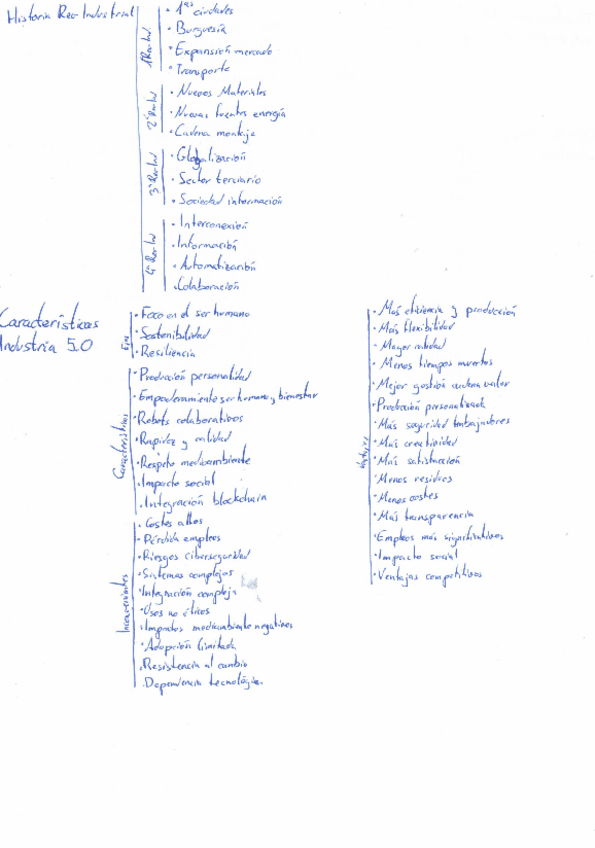 Historia Rev Industrial
1ª Rev Ind
· 1as ciudades
· Burguesía
· Expansión mercado
· Transporte
2ª Rev Ind
· Nuevos Materiales
· Nuevas fuentes energía
· Cadena montaje
3ª Rev Ind
· Globalización
· Sector terciario
· Sociedad información
4ª Rev Ind
· Interconexión
· Información
· Automatización
· Colaboración
Características
Industria 5.0
· Foco en el ser humano
· Sostenibilidad
· Resiliencia
Características
· Producción personalidad
· Empoderamiento ser humano y bienestar
· Robots colaborativos
· Rapidez y calidad
· Respeto medioambiente
· Impacto social
· Integración blockchain
Inconvenientes
· Costes altos
· Pérdida empleos
· Riesgos ciberseguridad
· Sistemas complejos
· Integración compleja
· Usos no éticos
· Impactos medioambiente negativos
· Adopción limitada
· Resistencia al cambio
· Dependencia tecnológica
Ventajas
· Más eficiencia y producción
· Más flexibilidad
· Mayor calidad
· Menos tiempos muertos
· Mejor gestión cadena valor
· Producción personalizada
· Más seguridad trabajadores
· Más creatividad
· Más satisfacción
· Menos residuos
· Menos costes
· Más transparencia
· Empleos más significativos
· Impacto social
· Ventajas competitivas